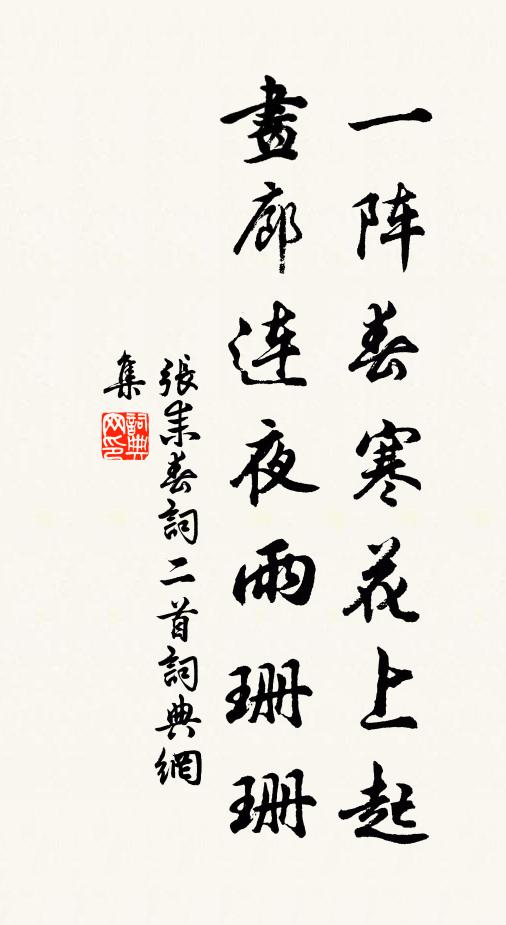 一阵春寒花上起
畫廊連夜雨珊珊
張耒春詞二首詞典網
集
詞典
网印